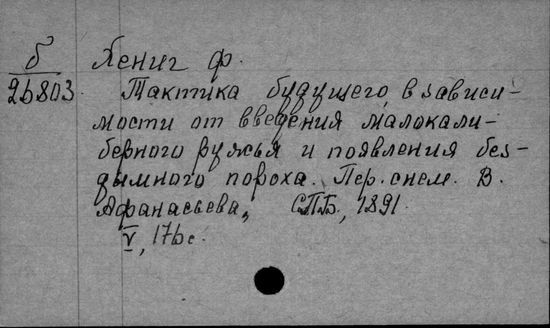 б Хениг Ф.
26803 Тактика будущего в зависи-
мости от введения малокали-
берного ружья и появления без-
дымного пороха. Пер. с нем. В.
Афанасьева„ СПБ., 1891.
V, 176 с.